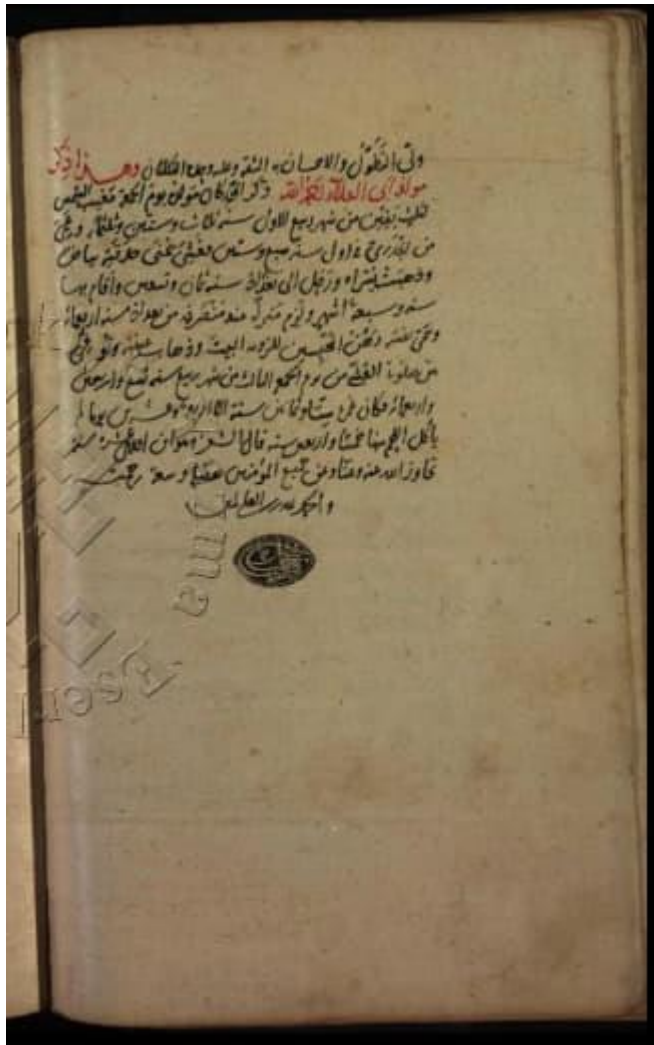 ولي التطول والاحسان به الثقة وعليه وحده التكلان وهذا ذكر
مولد ابي العلاء رحمه الله ذكر انه كان مولده يوم الجمعة مغيب الشمس
لثلث بقين من شهر ربيع الاول سنة ثلاث وستين وثلثمائة
من الجدري اول سنة سبع وستين فغشى يمنى حدقتيه بياض
وذهبت اليسرى ورحل الى بغداد سنة ثمان وتسعين واقام بها
سنة وسبعة اشهر ولزم منزله عند منصرفه من بغداد سنة اربعمائة
وسمى نفسه رهن المحبسين للزومه البيت وذهاب عينيه وتوفي
من يوم الجمعة الثالث من شهر ربيع سنة تسع واربعين
واربعمائة فكان عمره ستا وثمانين سنة الا اربعة وعشرين يوما لم
ياكل اللحم منها خمسا واربعين سنة قال الشعر وهو ابن احدى عشرة سنة
تجاوز الله عنه وعنا وعن جميع المؤمنين وسعة رحمته
والحمد لله رب العالمين
Eseri
ma